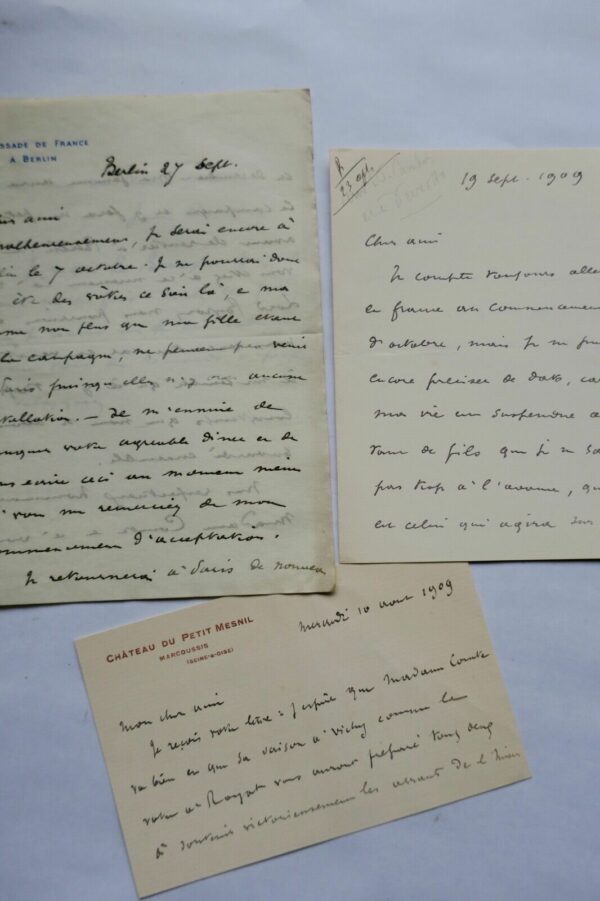 SSADE DE FRANCE
A BERLIN
Berlin 27 sept.
ami
malheureusement, je serai encore à
le 7 octobre. Je ne pourrai donc
être des vôtres ce soir là, e ma
non plus que ma fille étant
la campagne, ne peuvent pas venir
Paris puisqu'elles n'y ont aucune
stallation. — Je m'ennuie de
manquer votre agréable diner et de
vous écrire ceci au moment même
où vous me remerciez de mon
commencement d'acceptation.
Je retournerai à Paris de nouveau
R
23 sept.
19 sept. 1909
Cher ami
Je compte toujours alle
en france au commencemen
d'octobre, mais je ne pui
encore préciser de date, ca
ma vie est suspendue à
tant de fils que je ne sa
pas trop à l'avance, qu
est celui qui agira sur
CHÂTEAU DU PETIT MESNIL
MARCOUSSIS
(SEINE-&-OISE)
10 aout 1909
Mon cher ami
Je reçois votre lettre : J'espère que Madame Comte
va bien et que sa saison à Vichy comme la
votre à Royat vous auront préparé tous deux
à soutenir victorieusement les assauts de l'hiver